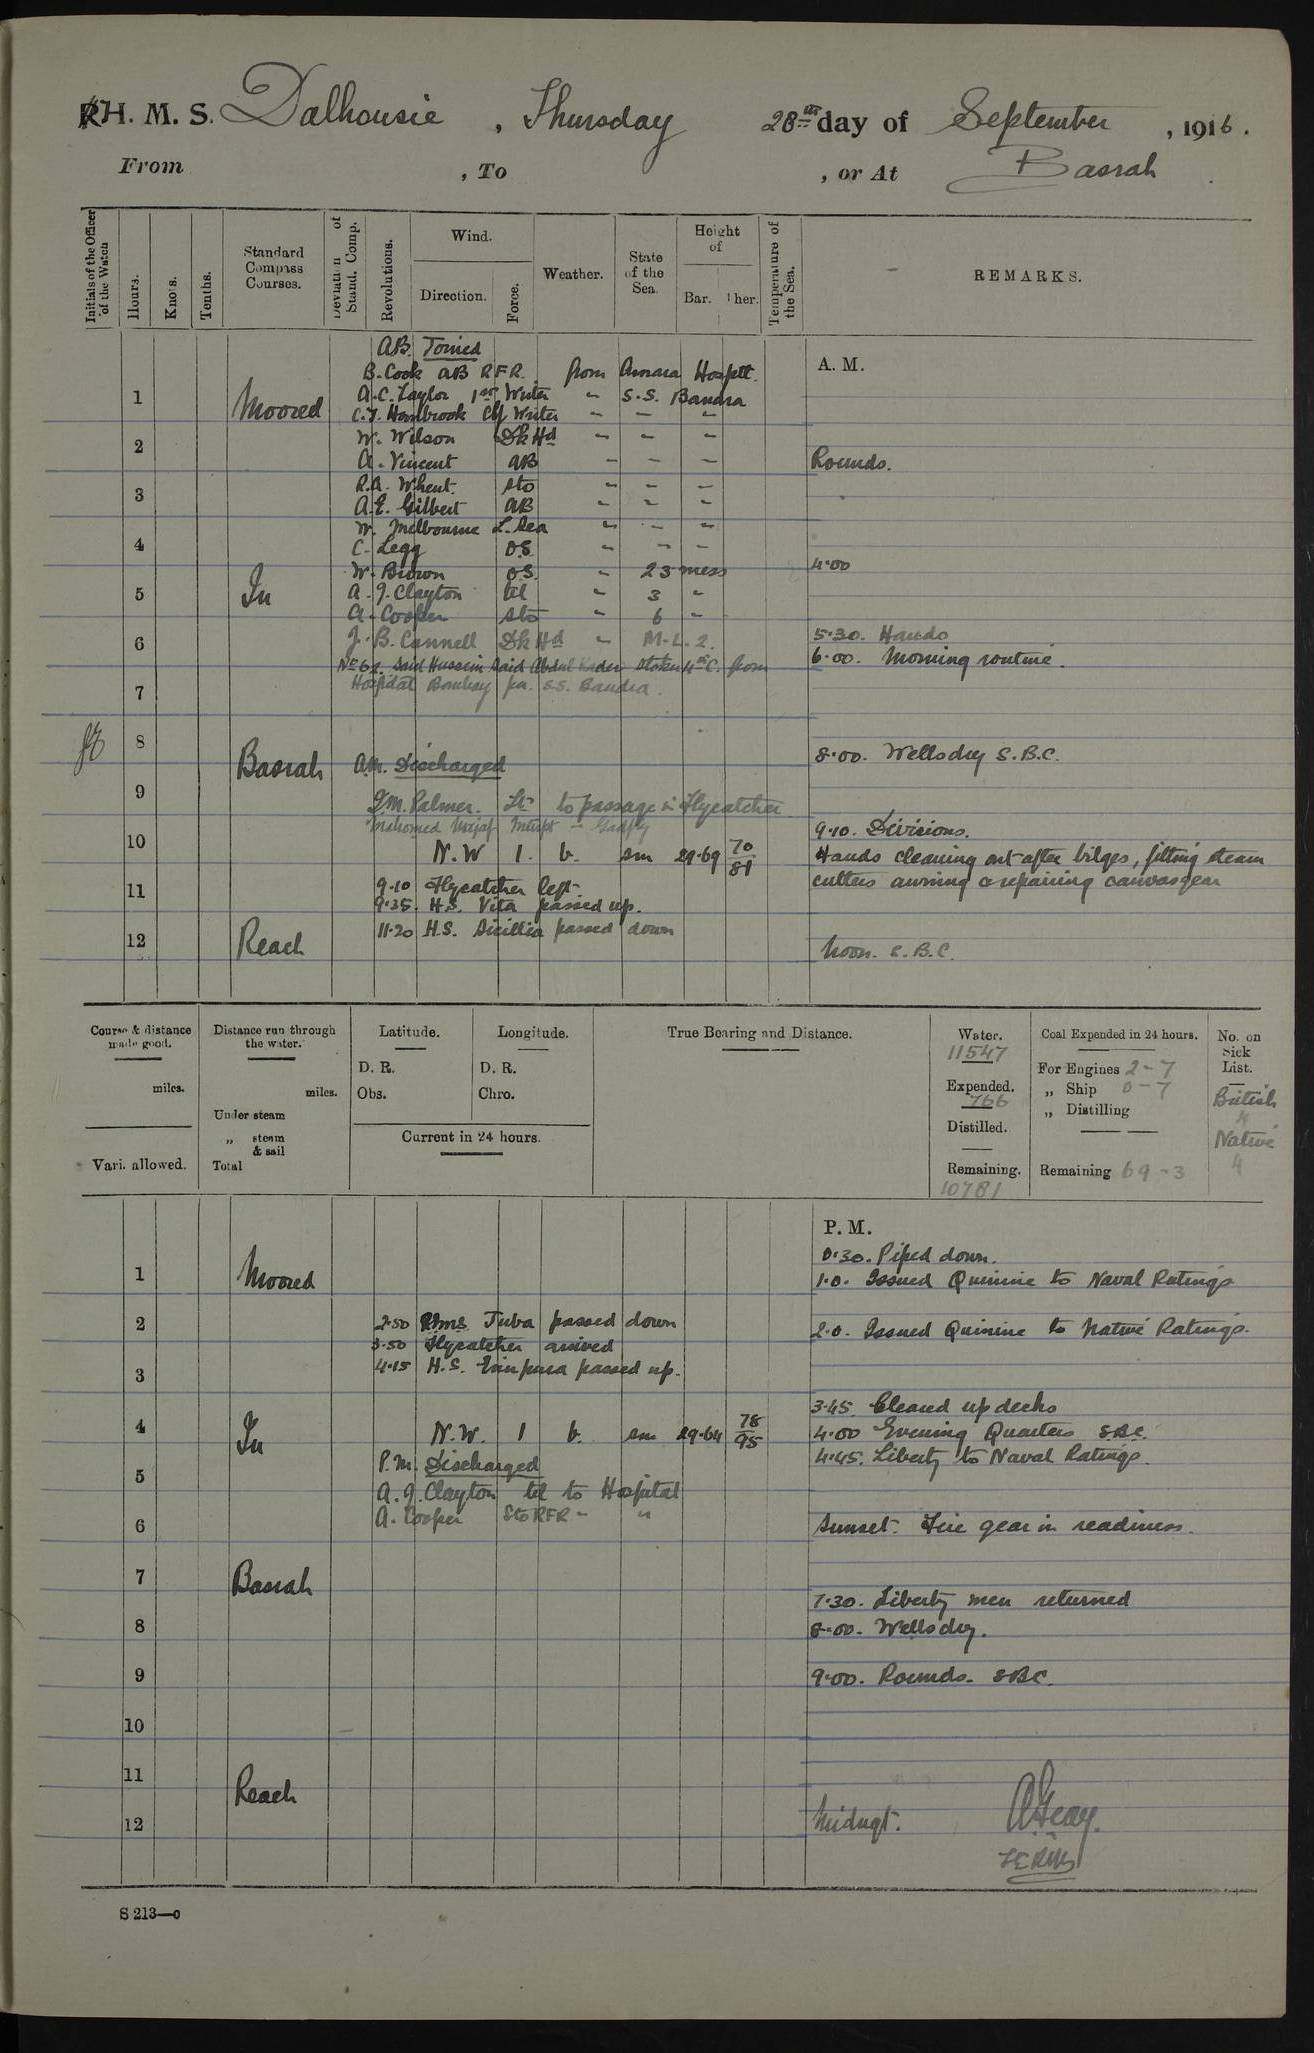 H. M. S. Dalhousie, Thursday 28th day of September, 1916.
From , To , or At Basrah
Initials of the Officer of the Watch
Hours.
Knots.
Tenths.
Standard Compass Courses.
Deviation of Stand. Comp.
Revolutions.
Wind.
Direction.
Force.
Weather.
State of the Sea.
Height of
Bar.
Ther.
Temperature of the Sea.
REMARKS.
A.M.
Joined
B. Cook AB RFR from Amara Hosptl.
1 Moored
A.C. Taylor 1st Writer " S.S. Bandra
C.J. Hornbrook Ch Writer " — "
W. Wilson Dk Hd " — "
2
A. Vincent AB " — —
Rounds.
R.A. Wheat. Sto " — —
3
A.E. Gilbert AB " " "
W. Melbourne L. Sea " — "
4
C. Legg O.S. " — —
W. Brown O.S. " 23 mess
4.00
5 In
A.J. Clayton tel " 3 "
A. Cooper Sto " 6 "
6
J.B. Cannell Dk Hd " M.L. 2.
5.30. Hands
Said Hussein Said Abdul Kader Stoker from
6.00. Morning routine.
Hospital Bombay per S.S. Bandra.
7
8
8.00. Wells dry S.B.C.
Basrah
A.M. Discharged
9
Palmer. Lt to passage in Flycatcher
9.10. Divisions.
10
N.W 1. b. sm 29.69 70/81
Hands cleaning out after bilges, fitting steam
cutters awning & repairing canvas gear
9.10 Flycatcher left
11
9.35. H.S. Vita passed up.
11.20 H.S. Sicillia passed down
12 Reach
Noon. S.B.C.
Course & distance made good.
miles.
Vari. allowed.
Distance run through the water.
miles.
Under steam
„ steam & sail
Total
Latitude.
D. R.
Obs.
Longitude.
D. R.
Chro.
Current in 24 hours.
True Bearing and Distance.
Water.
11547
Expended.
766
Distilled.
Remaining.
10781
Coal Expended in 24 hours.
For Engines 2-7
„ Ship 0-7
„ Distilling
Remaining 69-3
No. on Sick List.
British
4
Native
4
P. M.
0.30. Piped down.
1 Moored
1.0. Issued Quinine to Naval Ratings
2
2.50 Juba passed down
2.0. Issued Quinine to Native Ratings.
3.50 Flycatcher arrived
3
4.15 H.S. passed up.
3.45. Cleared up decks
4 In
N.W. 1 b. sm 29.64 78/95
4.00 Evening Quarters S.B.C.
4.45. Liberty to Naval Ratings.
P.M. Discharged
5
A.J. Clayton tel to Hospital
A. Cooper Sto RFR " "
6
Sunset. Fire gear in readiness.
7 Basrah
7.30. Liberty men returned
8
8.00. Wells dry.
9
9.00. Rounds. SBC.
10
11 Reach
12
Midngt.
S 213—o